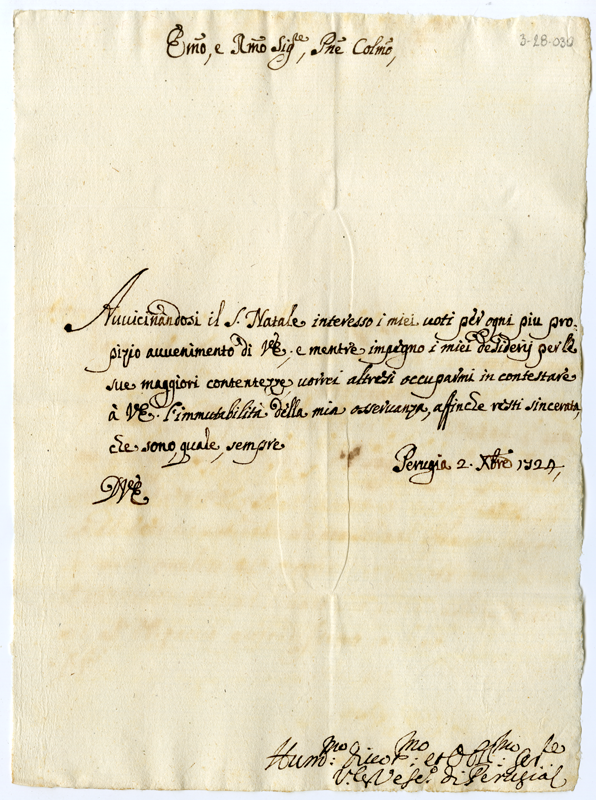 3-28-030
Emo, e Rmo Sigre, Pne Colmo,
Avvicinandosi il S. Natale interesso i miei voti per ogni piu pro-
pizio avvenimento di VE. e mentre impegno i miei desiderij per le
sue maggiori contentezze, vorrei altresi occuparmi in contestare
à VE. l'immutabilità della mia osservanza, affinche resti sincerata,
che sono, quale, sempre
Perugia 2. Xbre 1724,
DVE
Humo: Divo: et Obl: Ser:re
V. Vesc: di Perugia